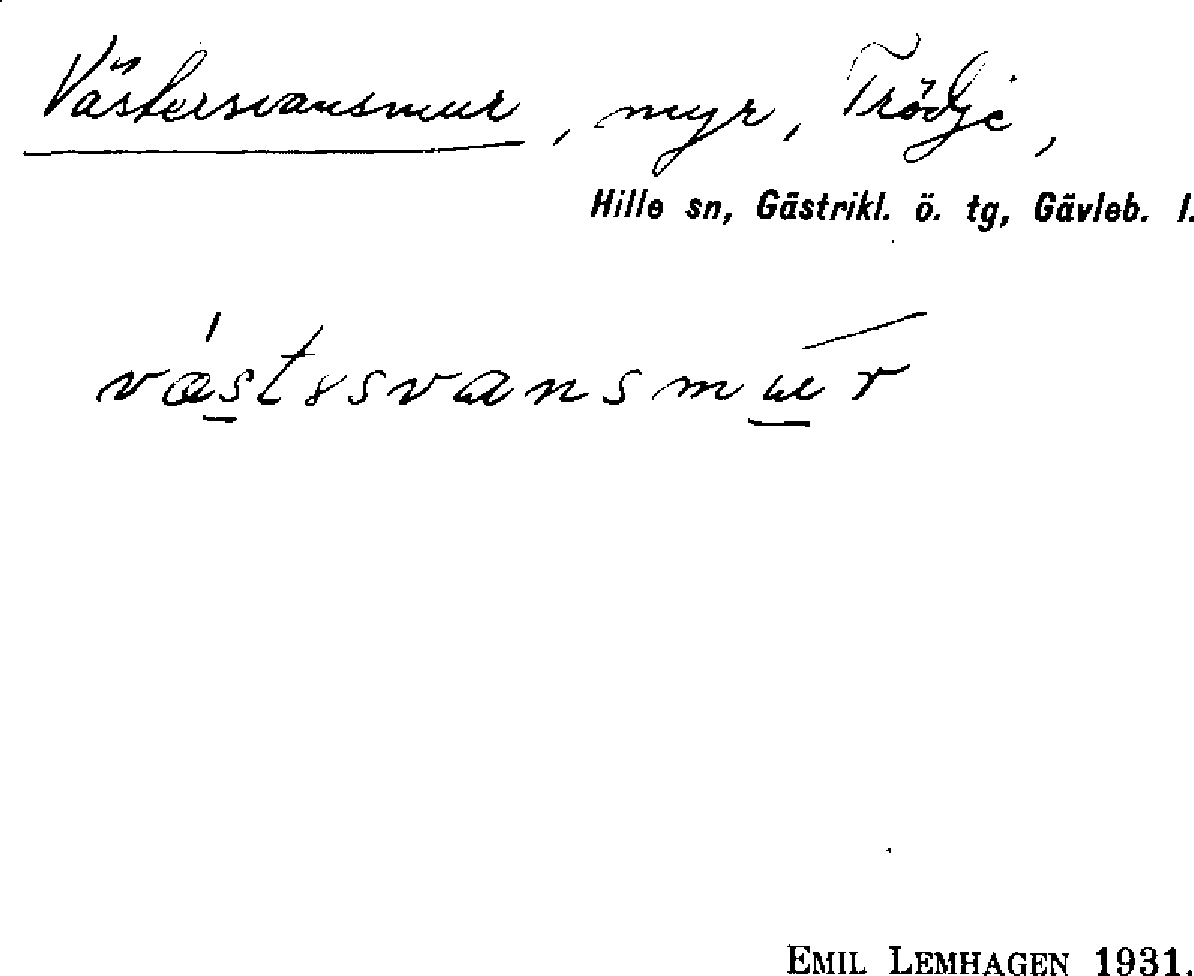 Västersvansmur, myr, Trödje,
Hille sn, Gästrikl. ö. tg, Gävleb. l.
EMIL LEMHAGEN 1931.